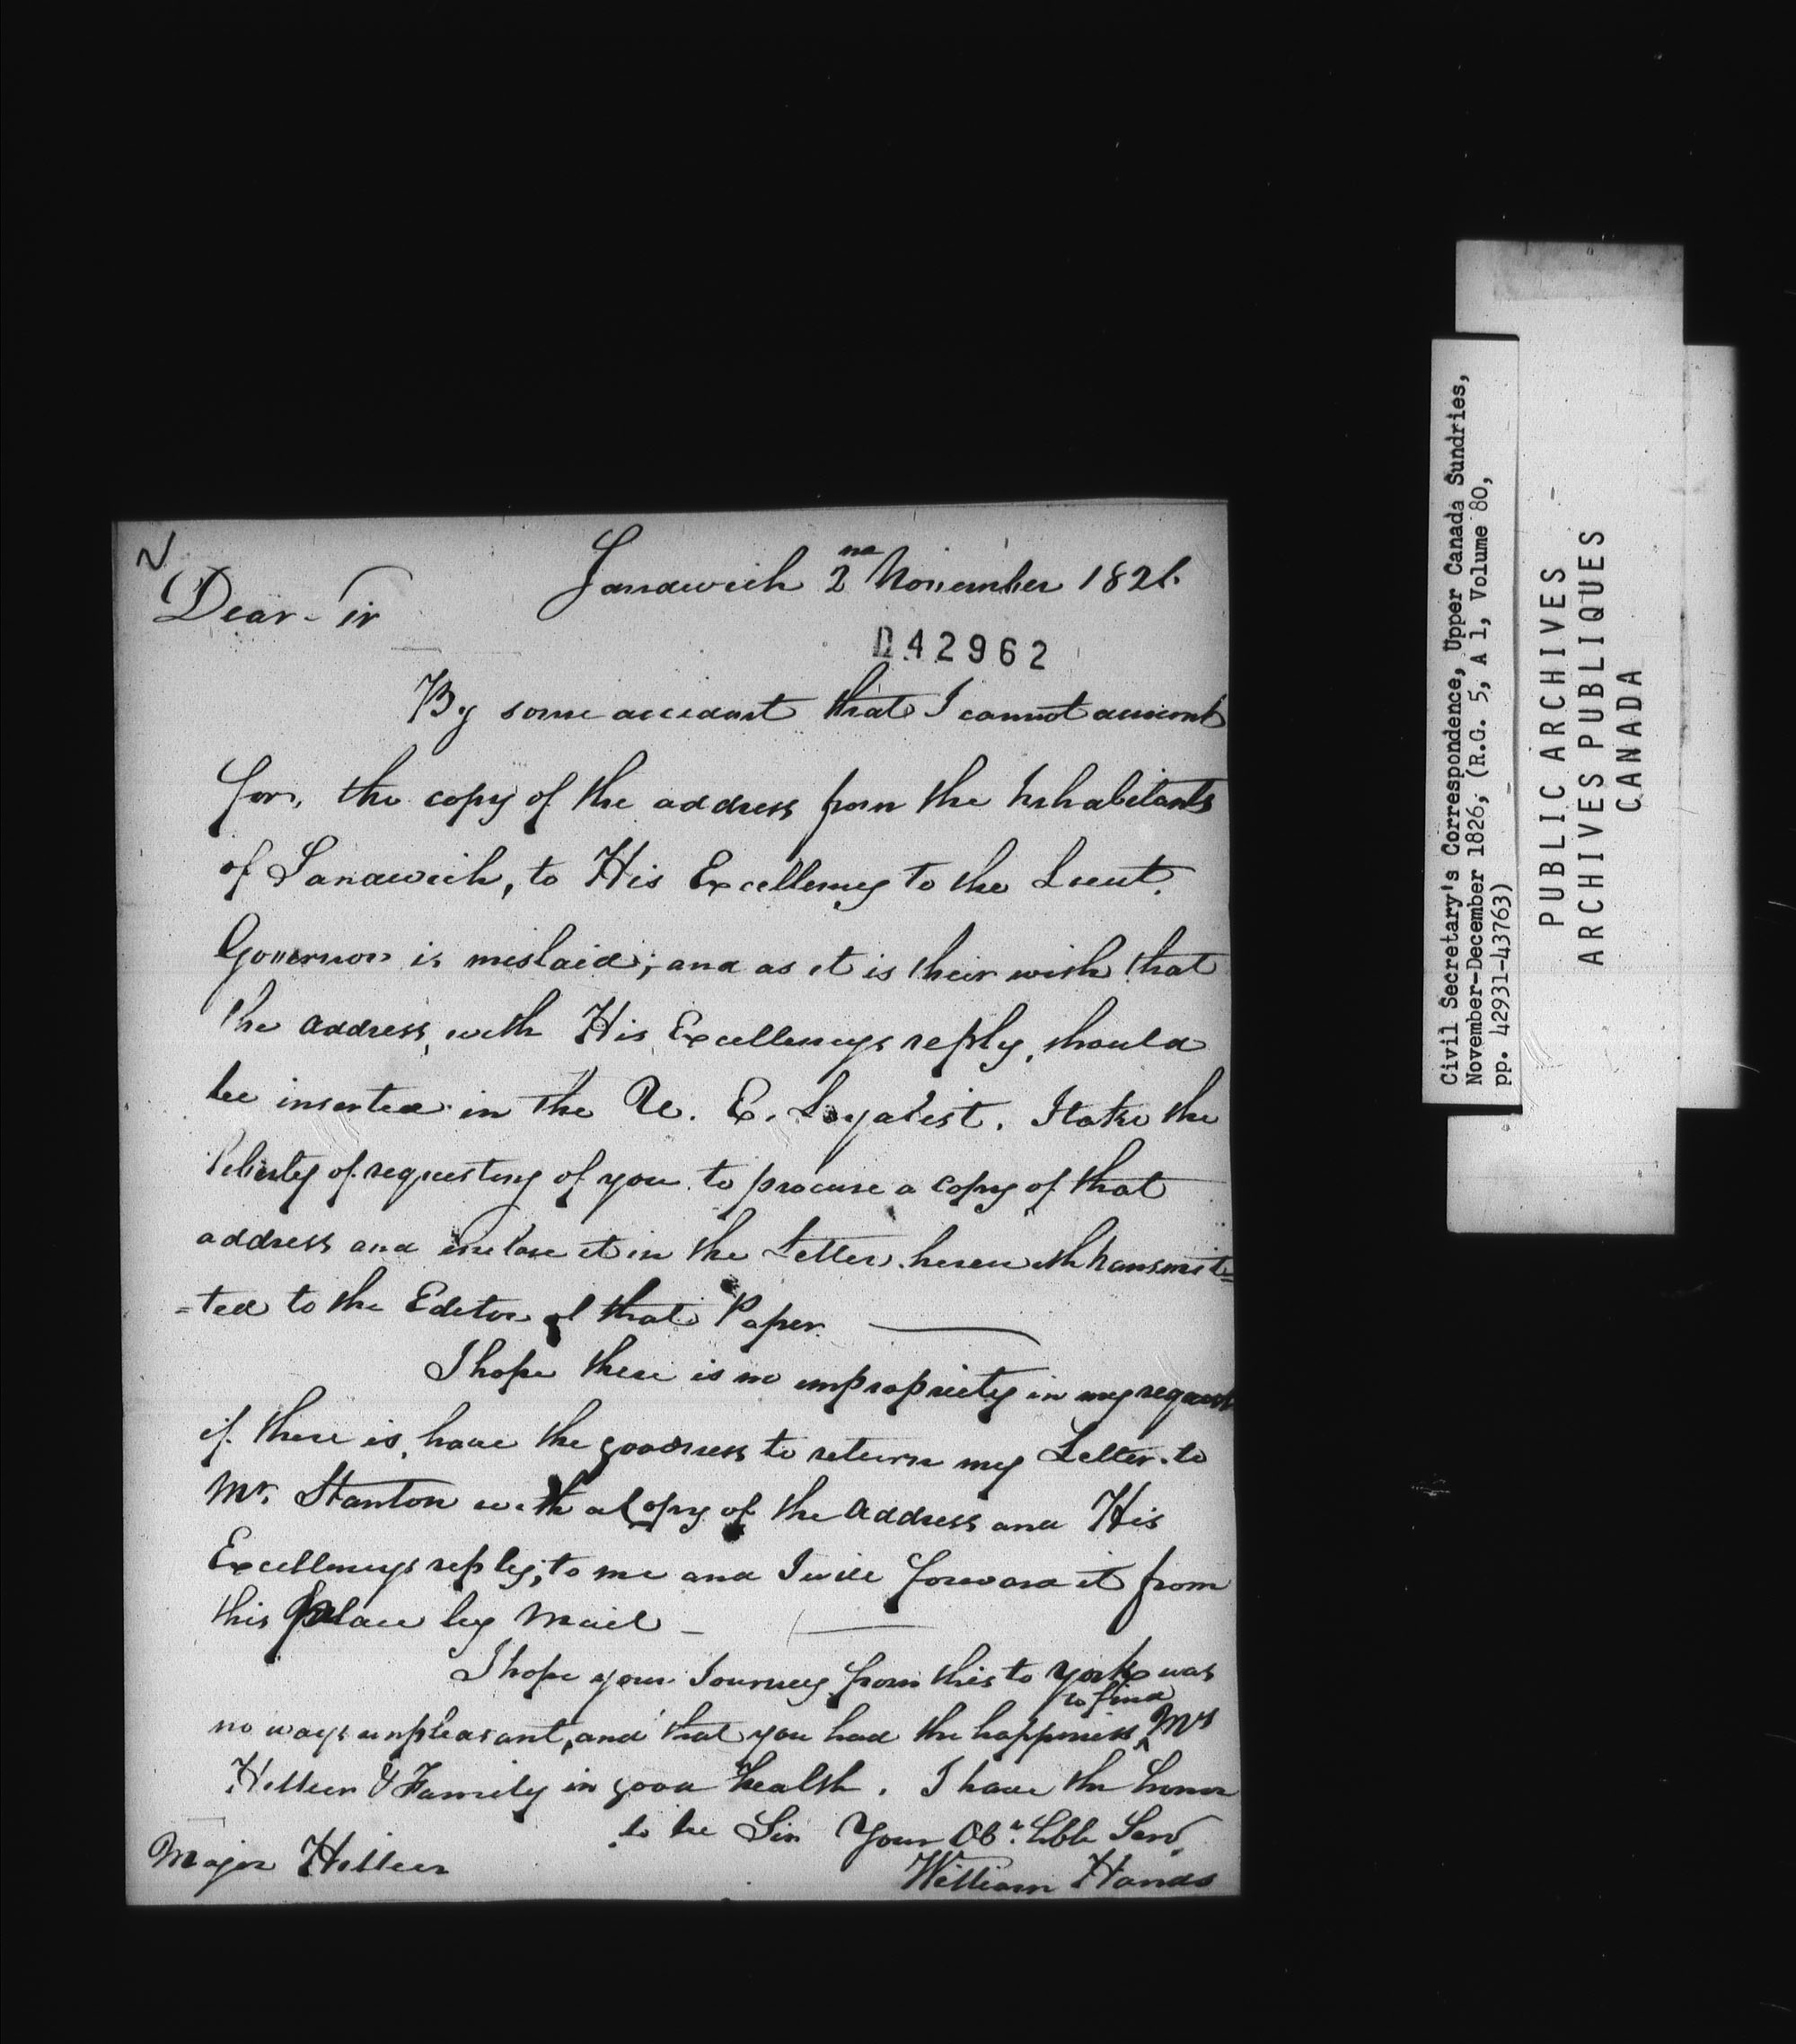 N
Sandwich 2nd November 1826.
Dear Sir
042962
By some accedant that I cannot account
for, the copy of the address from the Inhabitants
of Sandwich, to His Excellency to the Lieut.
Governor is mislaid; and as it is their wish that
the address, with His Excellencys reply, should
be inserted in the U. E. Loyalist. I take the
liberty of requesting of you to procure a copy of that
address and inclose it in the Letter herewith transmit=
=ted to the Editor of that Paper.
I hope there is no impropriety in my request
if there is, have the goodness to return my Letter to
Mr. Stanton with a Copy of the Address and His
Excellencys reply; to me and I will forward it from
this place by Mail
I hope your Journey from this to York was
no ways unpleasant, and that you had the happiness to find Mrs
Hillier & Family in good health. I have the honor
to be Sir Your Obt. Hble Serv.
William Hands
Major Hillier
Civil Secretary's Correspondence, Upper Canada Sundries,
November-December 1826, (R.G. 5, A 1, Volume 80,
pp. 42931-43763)
PUBLIC ARCHIVES -
ARCHIVES PUBLIQUES
CANADA